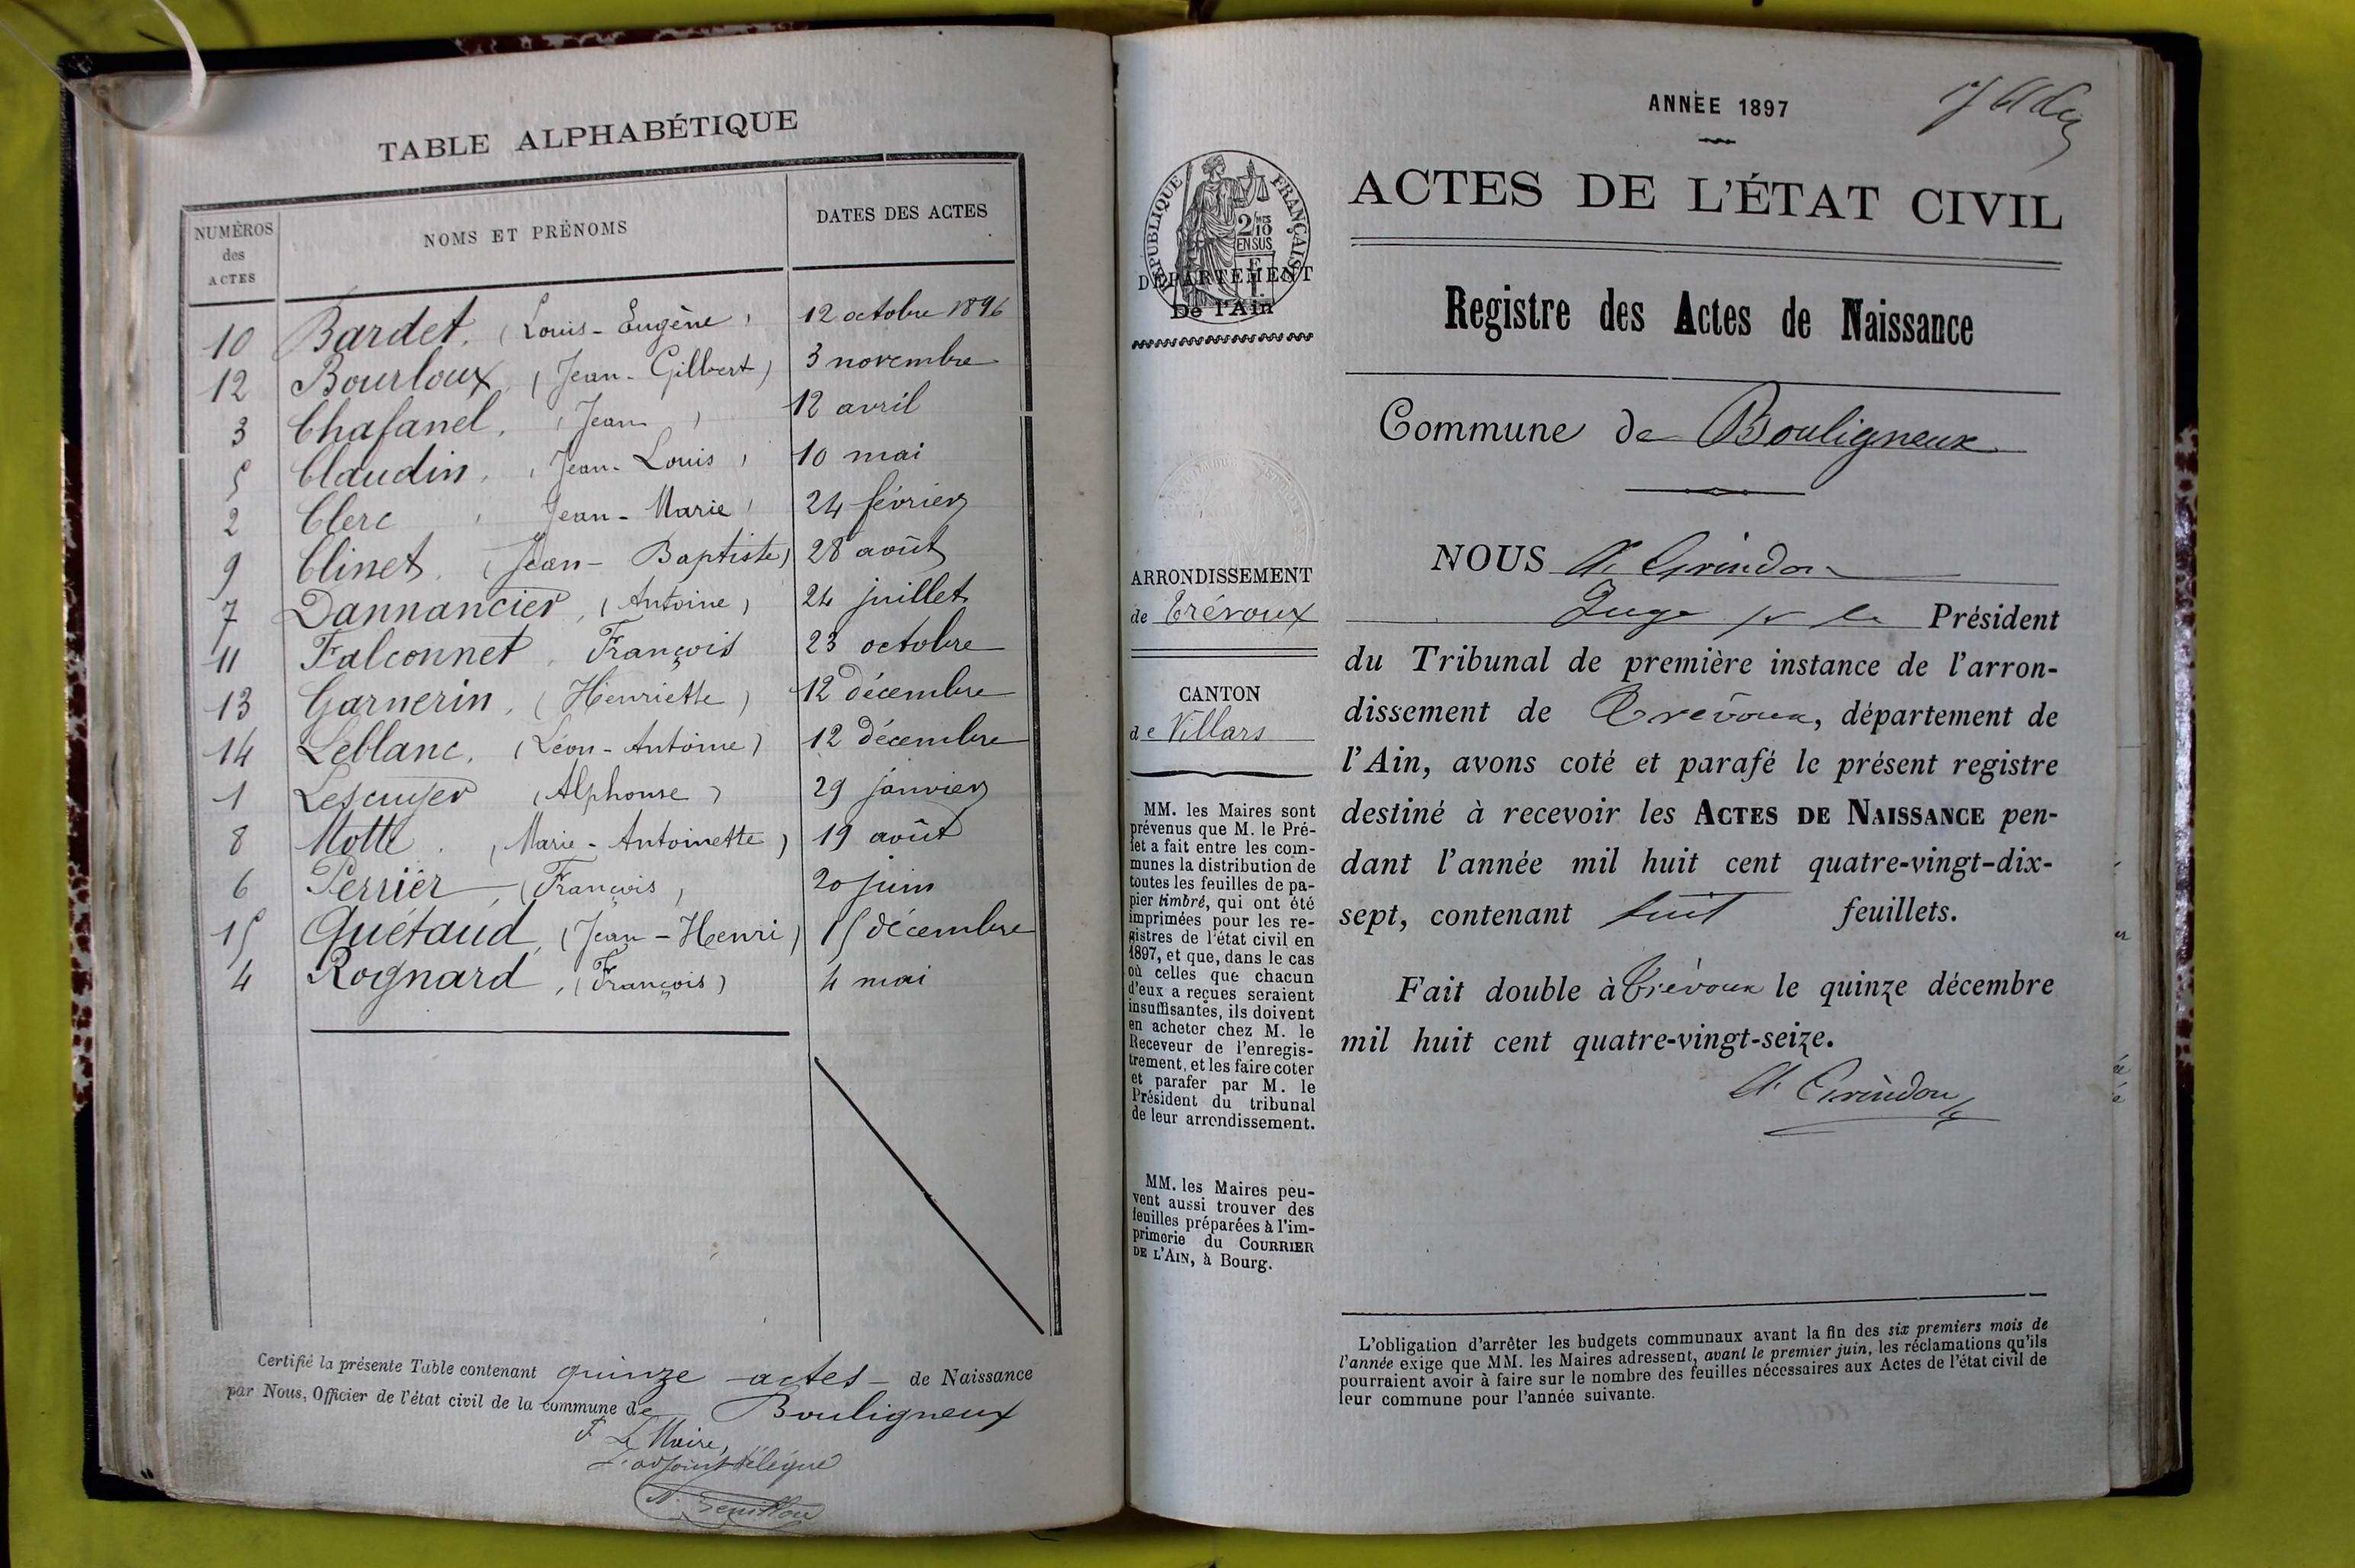 TABLE ALPHABÉTIQUE
NUMÉROS des ACTES
NOMS ET PRÉNOMS
DATES DES ACTES
10 Bardet, (Louis-Eugène) 12 octobre 1896
12 Bourloux, (Jean-Gilbert) 3 novembre
3 Chafanel, (Jean) 12 avril
5 Claudin, (Jean-Louis) 10 mai
2 Clerc (Jean-Marie) 24 février
9 Clinet, (Jean-Baptiste) 28 août
7 Dannancier, (Antoine) 24 juillet
11 Falconnet, François 23 octobre
13 Garnerin, (Henriette) 12 décembre
14 Leblanc, (Léon-Antoine) 12 décembre
1 Lescuyer (Alphonse) 29 janvier
8 Motte, (Marie-Antoinette) 19 août
6 Perrier, (François) 20 juin
15 Quétaud, (Jean-Henri) 15 décembre
4 Rognard, (François) 4 mai
Certifié la présente Table contenant quinze actes de Naissance
par Nous, Officier de l'état civil de la commune de Bouligneux
P. Le Maire,
L'adjoint délégué
ANNÉE 1897
ACTES DE L'ÉTAT CIVIL
RÉPUBLIQUE FRANÇAISE
2/10 MES
EN SUS
DÉPARTEMENT
De l'Ain
Registre des Actes de Naissance
Commune de Bouligneux
ARRONDISSEMENT
de Trévoux
CANTON
de Villars
MM. les Maires sont
prévenus que M. le Pré-
fet a fait entre les com-
munes la distribution de
toutes les feuilles de pa-
pier timbré, qui ont été
imprimées pour les re-
gistres de l'état civil en
1897, et que, dans le cas
où celles que chacun
d'eux a reçues seraient
insuffisantes, ils doivent
en acheter chez M. le
Receveur de l'enregis-
trement, et les faire coter
et parafer par M. le
Président du tribunal
de leur arrondissement.
MM. les Maires peu-
vent aussi trouver des
feuilles préparées à l'im-
primerie du COURRIER
DE L'AIN, à Bourg.
NOUS A. Grindon
Juge pr le Président
du Tribunal de première instance de l'arron-
dissement de Trévoux, département de
l'Ain, avons coté et parafé le présent registre
destiné à recevoir les ACTES DE NAISSANCE pen-
dant l'année mil huit cent quatre-vingt-dix-
sept, contenant huit feuillets.
Fait double à Trévoux le quinze décembre
mil huit cent quatre-vingt-seize.
A. Grindon
L'obligation d'arrêter les budgets communaux avant la fin des six premiers mois de
l'année exige que MM. les Maires adressent, avant le premier juin, les réclamations qu'ils
pourraient avoir à faire sur le nombre des feuilles nécessaires aux Actes de l'état civil de
leur commune pour l'année suivante.